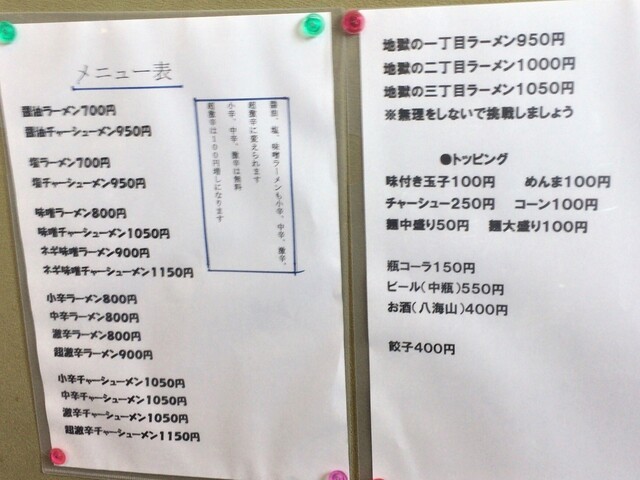 メニュー表
醤油ラーメン700円
醤油チャーシューメン950円
塩ラーメン700円
塩チャーシューメン950円
味噌ラーメン800円
味噌チャーシューメン1050円
ネギ味噌ラーメン900円
ネギ味噌チャーシューメン1150円
小辛ラーメン800円
中辛ラーメン800円
激辛ラーメン800円
超激辛ラーメン900円
小辛チャーシューメン1050円
中辛チャーシューメン1050円
激辛チャーシューメン1050円
超激辛チャーシューメン1150円
醤油、塩、味噌ラーメンも小辛、中辛、激辛、
超激辛に変えられます
小辛、中辛、激辛は無料
超激辛は100円増しになります
地獄の一丁目ラーメン950円
地獄の二丁目ラーメン1000円
地獄の三丁目ラーメン1050円
※無理をしないで挑戦しましょう
●トッピング
味付き玉子100円 めんま100円
チャーシュー250円 コーン100円
麺中盛り50円 麺大盛り100円
瓶コーラ150円
ビール(中瓶)550円
お酒(八海山)400円
餃子400円